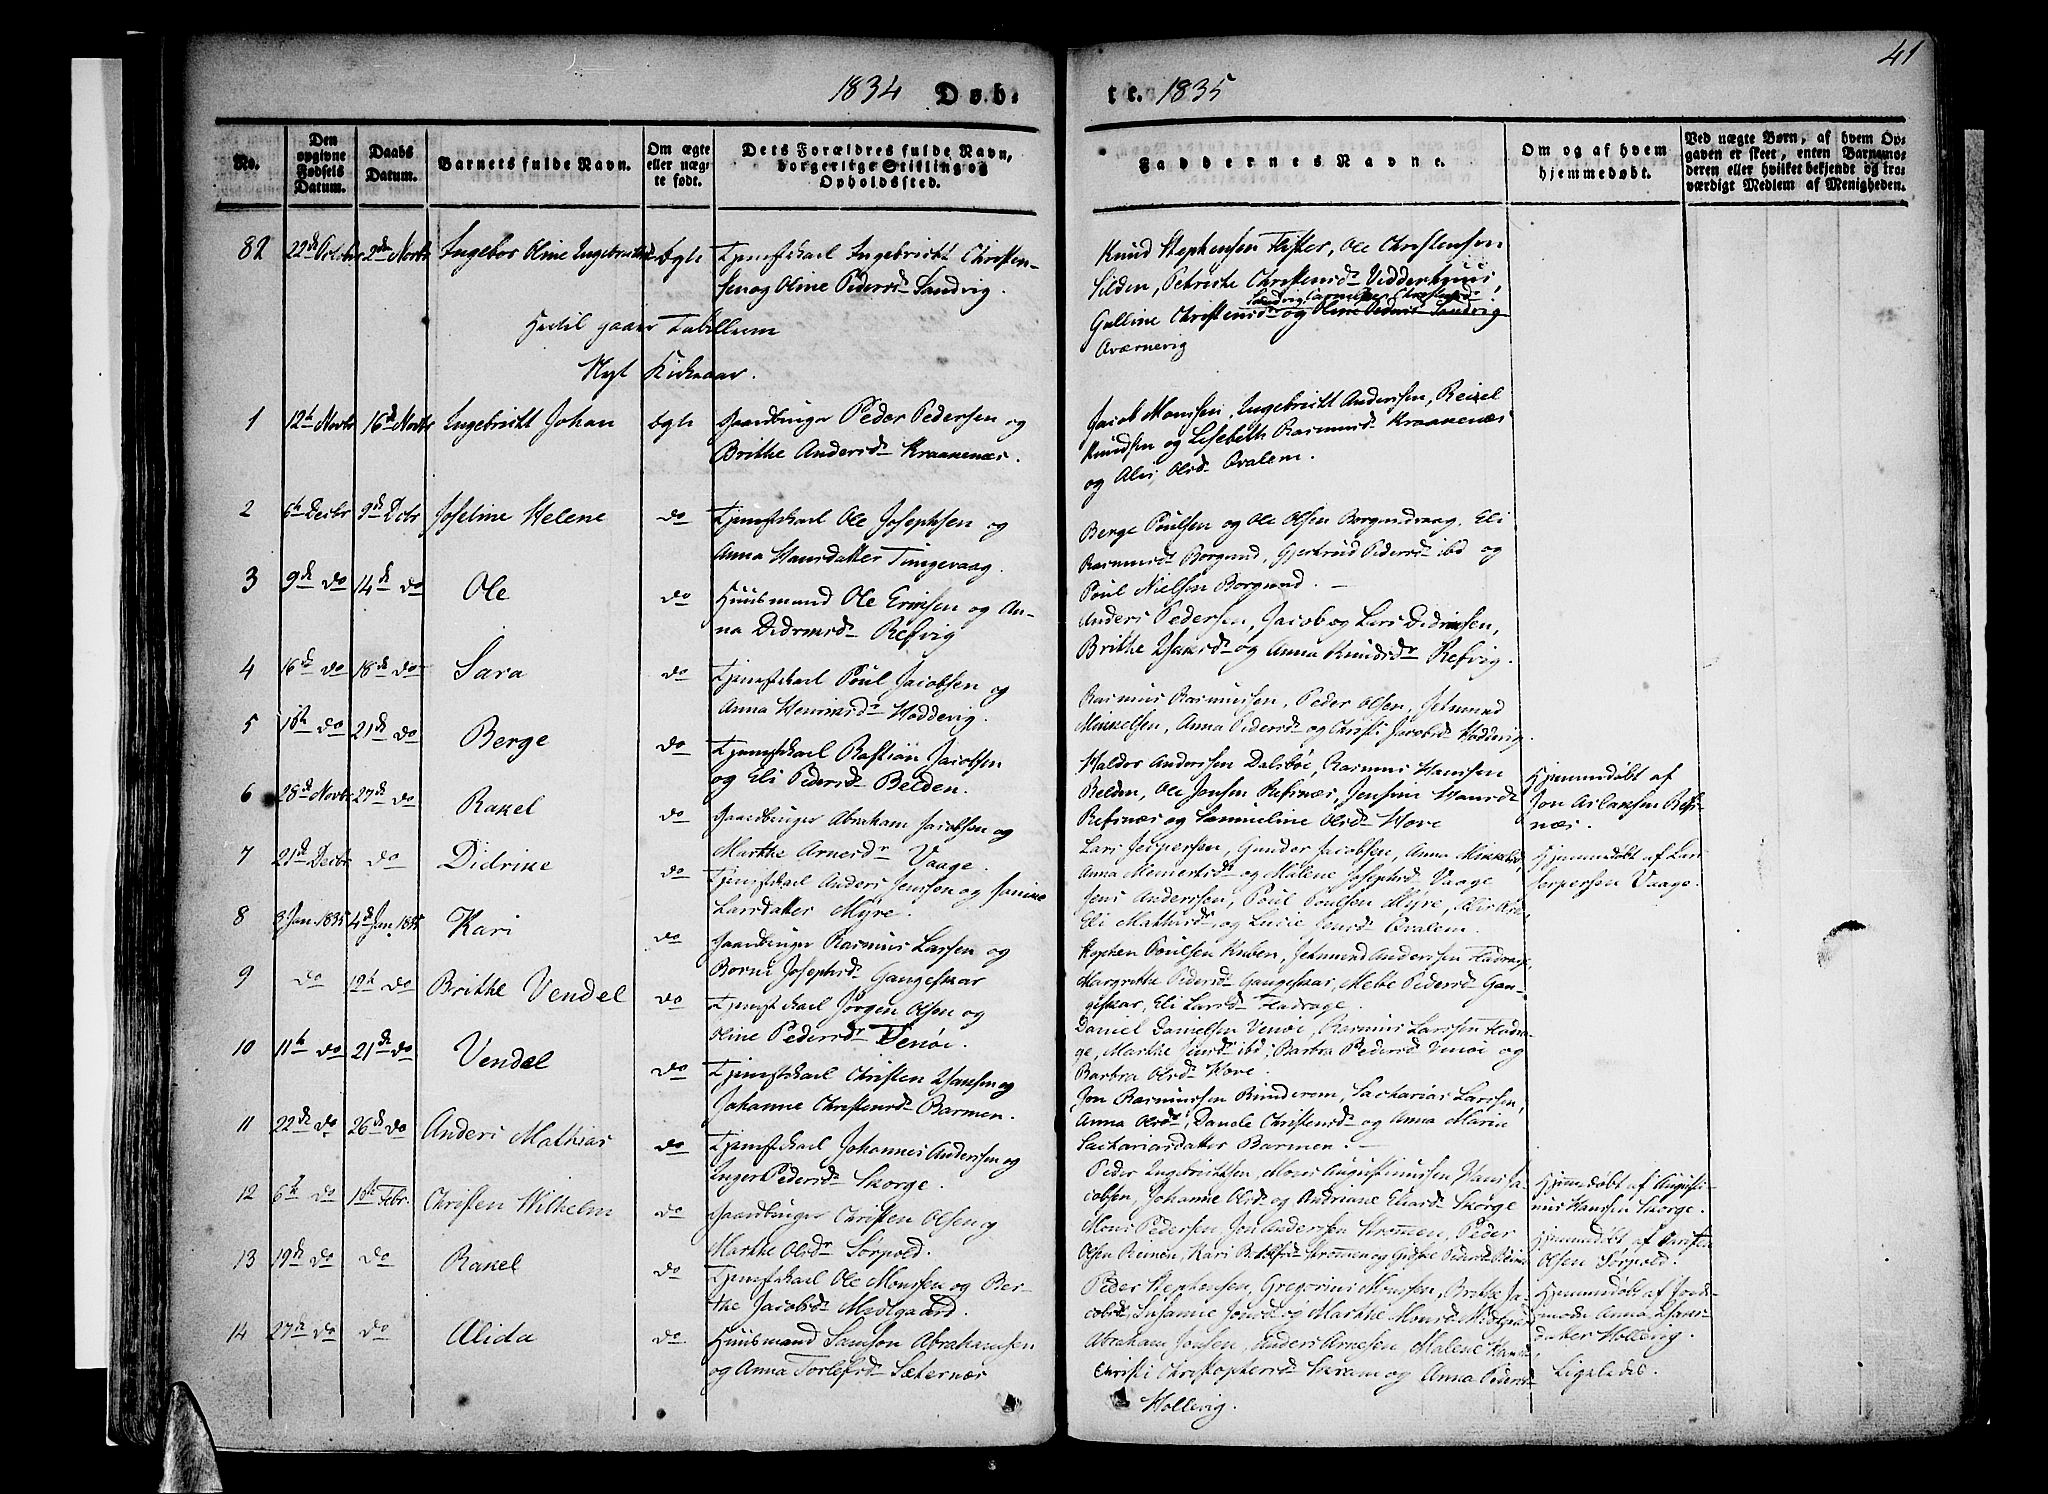 41
1834 Døb-
te. 1835
No.
Den opgivne Fødsels Datum.
Daabs Datum.
Barnets fulde Navn.
Om ægte eller uægte født.
Dets Forældres fulde Navn, borgerlige Stilling og Opholdssted.
Faddernes Navne.
Om og af hvem hjemmedøbt.
Ved uægte Børn, af hvem Opgaven er skeet, enten Barnemoderen eller hvilket bekjendt og troværdigt Medlem af Menigheden.
82 22de Octobr 2den Novbr Ingebor Oline Ingebrictsd ægte Tjenestekarl Ingebrickt Christen-
sen og Oline Pedersd Sandvig.
Knud Stephensen Flister, Ole Christensen
Silden, Petriche Christensd Vedderhuus,
Gulline Christensd og Oline Pedersd Sandvig
Hertil gaaer Tabellerne
Nyt Kirkeaar.
1 12te Novbr 16de Novbr Ingebrickt Johan ægte Gaardbruger Peder Pedersen og
Brithe Andersd Kraakenæs.
Jacob Monssen, Ingebrickt Anderssen,
Knudsen og Lisebeth Rasmusd Kraakenæs
og Olsd Qvalem.
2 6te Decbr 9de Dcbr Joseline Helene do Tjenestekarl Ole Josephsen og
Anna Hansdatter Tungevaag.
Berge Poulsen og Ole Olsen Borgundvaag, Eli
Rasmusd Borgund, Gjertrud Pedersd ibd og
Poul Nielsen Borgund.
3 9de do 14de do Ole do Huusmand Ole Ericksen og An-
na Didriksd Refvig
Anders Pedersen, Jacob og Lars Didriksen,
Brithe Hansd og Anna Knudsd Refvig.
4 16de do 18de do Sara do Tjenestekarl Poul Jacobsen og
Anna Hoddevig.
Rasmus Rasmussen, Peder Olsen, Jetmund
Mikkelsen, Anna Pedersd og Christi Jacobsd Hoddevig
5 21de do Berge do Tjenestekarl Bastian Jacobsen
og Eli Pedersd Belden.
Haldor Anderssen Dalsböe, Rasmus Hanssen
Belden, Ole Jonsen Refsnæs, Hansd
Refsnæs og Samueline Olsd Hove
Hjemmedøbt af
Jon Refs-
næs.
6 28de Novbr 27de do Rakel do Gaardbruger Abraham Jacobsen og
Marthe Arnesd Vaage.
Lars Jespersen, Gunder Jacobsen, Anna Mikkelsd,
Anna og Malene Josephsd Vaage
Hjemmedøbt af Lars
Jespersen Vaage.
7 21de Decbr do Didrike do Tjenestekarl Anders Jensen og Janike
Larsdatter Myre.
Jens Anderssen, Poul Poulsen Myre,
Eli Mathiasd, og Lucie Jensd Qvalem.
8 3 Jan. 1835 4de Jan. 1835 Kari do Gaardbruger Rasmus Larssen og
Josephsd Gangeskar
Stephen Poulsen Kuben, Jetmund Anderssen Fladrage,
Margrethe Pedersd Gangeskar, Mebe Pedersd Gan-
geskar, Eli Larsd Fladrage.
9 do do Brithe Vendel do Tjenestekarl Jörgen Olsen og
Oline Pedersd Venöe.
Daniel Danielsen Venöe, Rasmus Larssen Fladra-
ge, Marthe Jensd ibd, Barbra Pedersd Venöe og
Barbra Olsd Hove.
10 11te do 21de do Vendel do Tjenestekarl Christen Hansen og
Johanne Christensd Barmen.
Jon Rasmussen Runderem, Sacharias Larssen,
Anna Olsd, Christensd og Anna Marie
Sachariasdatter Barmen.
11 22de do 26de do Anders Mathias do Tjenestekarl Johannes Anderssen og
Inger Pedersd Skorge.
Peder Ingebricktsen, Mons Augustinussen, Hans Ja-
cobsen, Johanne Olsd og Andriane Eliasd Skorge
Hjemmedøbt af Augusti-
nus Hanssen Skorge.
12 6te do Febr. Christen Wilhelm do Gaardbruger Christen Olsen og
Marthe Olsd Sörpold.
Mons Pedersen, Jon Anderssen Strömmen, Peder
Olsen, Kari Strömmen og
Hjemmedøbt af Christen
Olsen Sörpold.
13 19de do do Rakel do Tjenestekarl Ole Monssen og Ber-
the Jacobsd Maölgaard.
Peder Stephensen, Gregorius Monssen, Brithe Ja-
cobsd, Susanne Jonsd og Marthe Monsd
Hjemmedøbt af Jord-
moder Anna Hans-
datter Hollevig.
14 27de do do Alida do Huusmand Samson Abrahamsen
og Anna Torlefsd Sæternæs
Abraham Jonsen, Anders Arnesen, Malene Hansd
Christi Christophersd og Anna Pedersd
Hollevig.
Ligeledes.